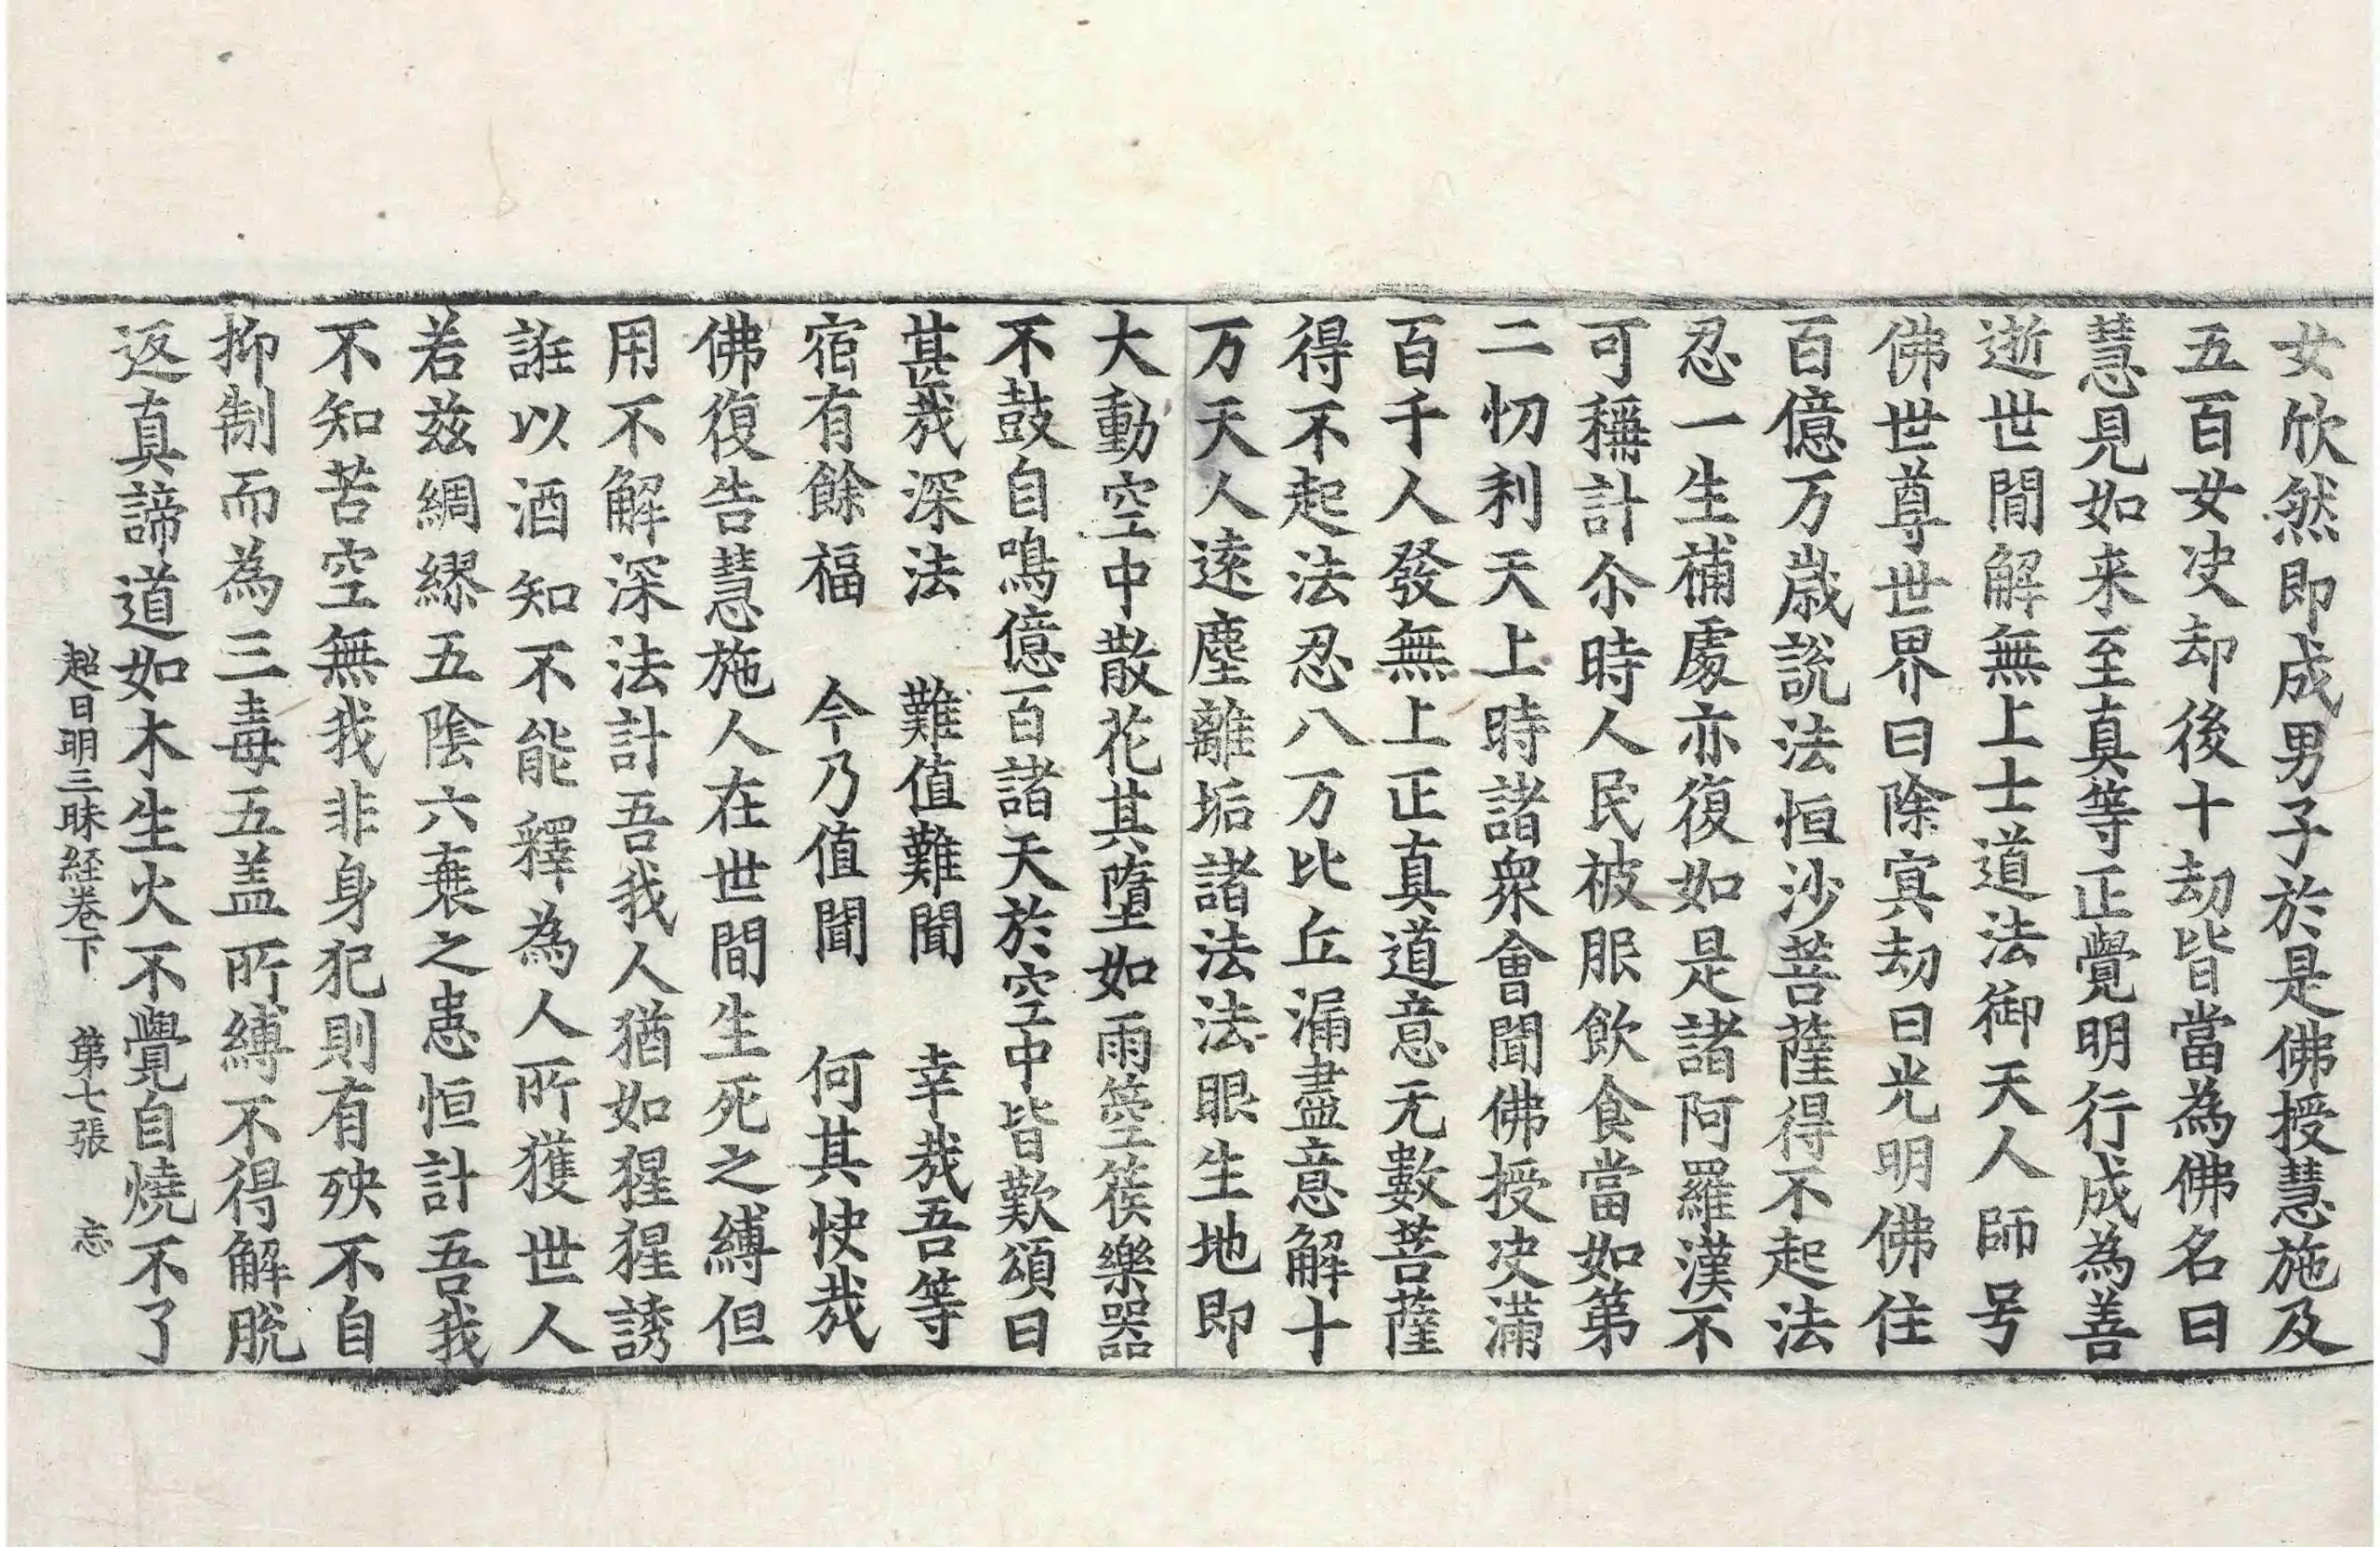 女欣然即成男子於是佛授慧施及
五百女决却後十劫皆當為佛名曰
慧見如来至真等正覺明行成為善
逝世間解無上士道法御天人師号
佛世尊世界曰除冥劫曰光明佛住
百億万歲說法恒沙菩薩得不起法
忍一生補處亦復如是諸阿羅漢不
可稱計尒時人民被服飲食當如第
二忉利天上時諸衆會聞佛授决滿
百千人發無上正真道意无數菩薩
得不起法忍八万比丘漏盡意解十
万天人遠塵離垢諸法法眼生地即
大動空中散花其墮如雨箜篌樂器
不鼓自鳴億百諸天於空中皆歎頌曰
甚哉深法　難值難聞　幸哉吾等
宿有餘福　今乃值聞　何其快哉
佛復告慧施人在世間生死之縛但
用不解深法計吾我人猶如猩猩誘
誑以酒知不能釋為人所獲世人
若茲綢繆五陰六衰之患恒計吾我
不知苦空無我非身犯則有殃不自
抑制而為三毒五盖所縛不得解脫
返真諦道如木生火不覺自燒不了
超日明三昧経卷下　第七張　忘